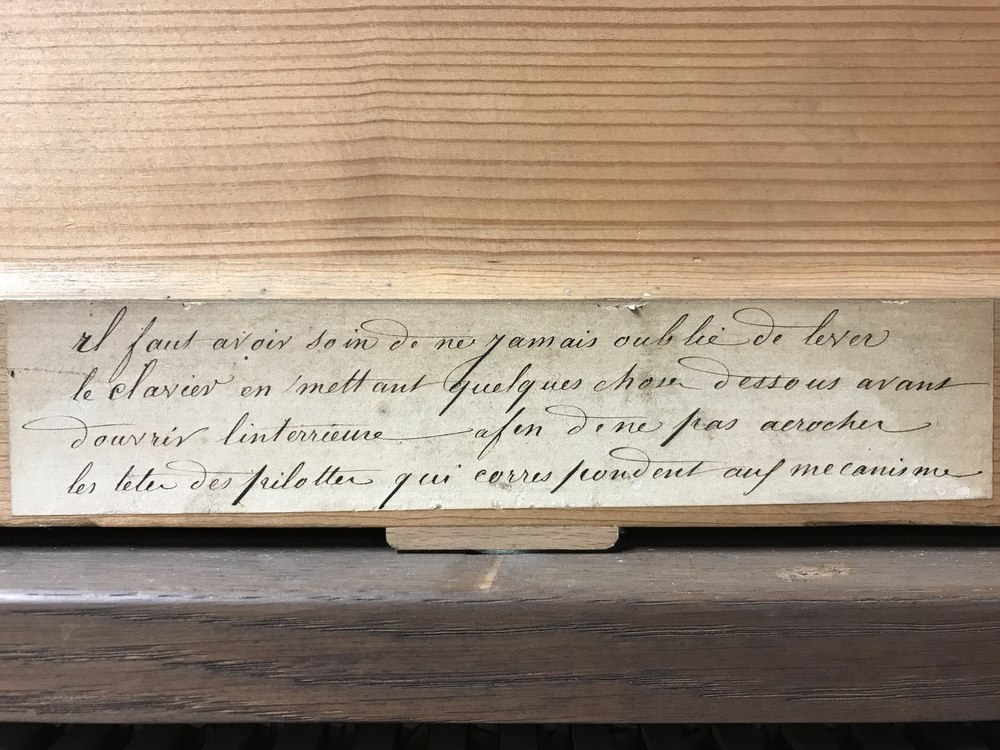 il faut avoir soin de ne jamais oublié de lever
le clavier en mettant quelques chose dessous avant
douvrir linterrieure afen dene pas acrocher
les tetes des pilottes qui correspondent aux mecanisme